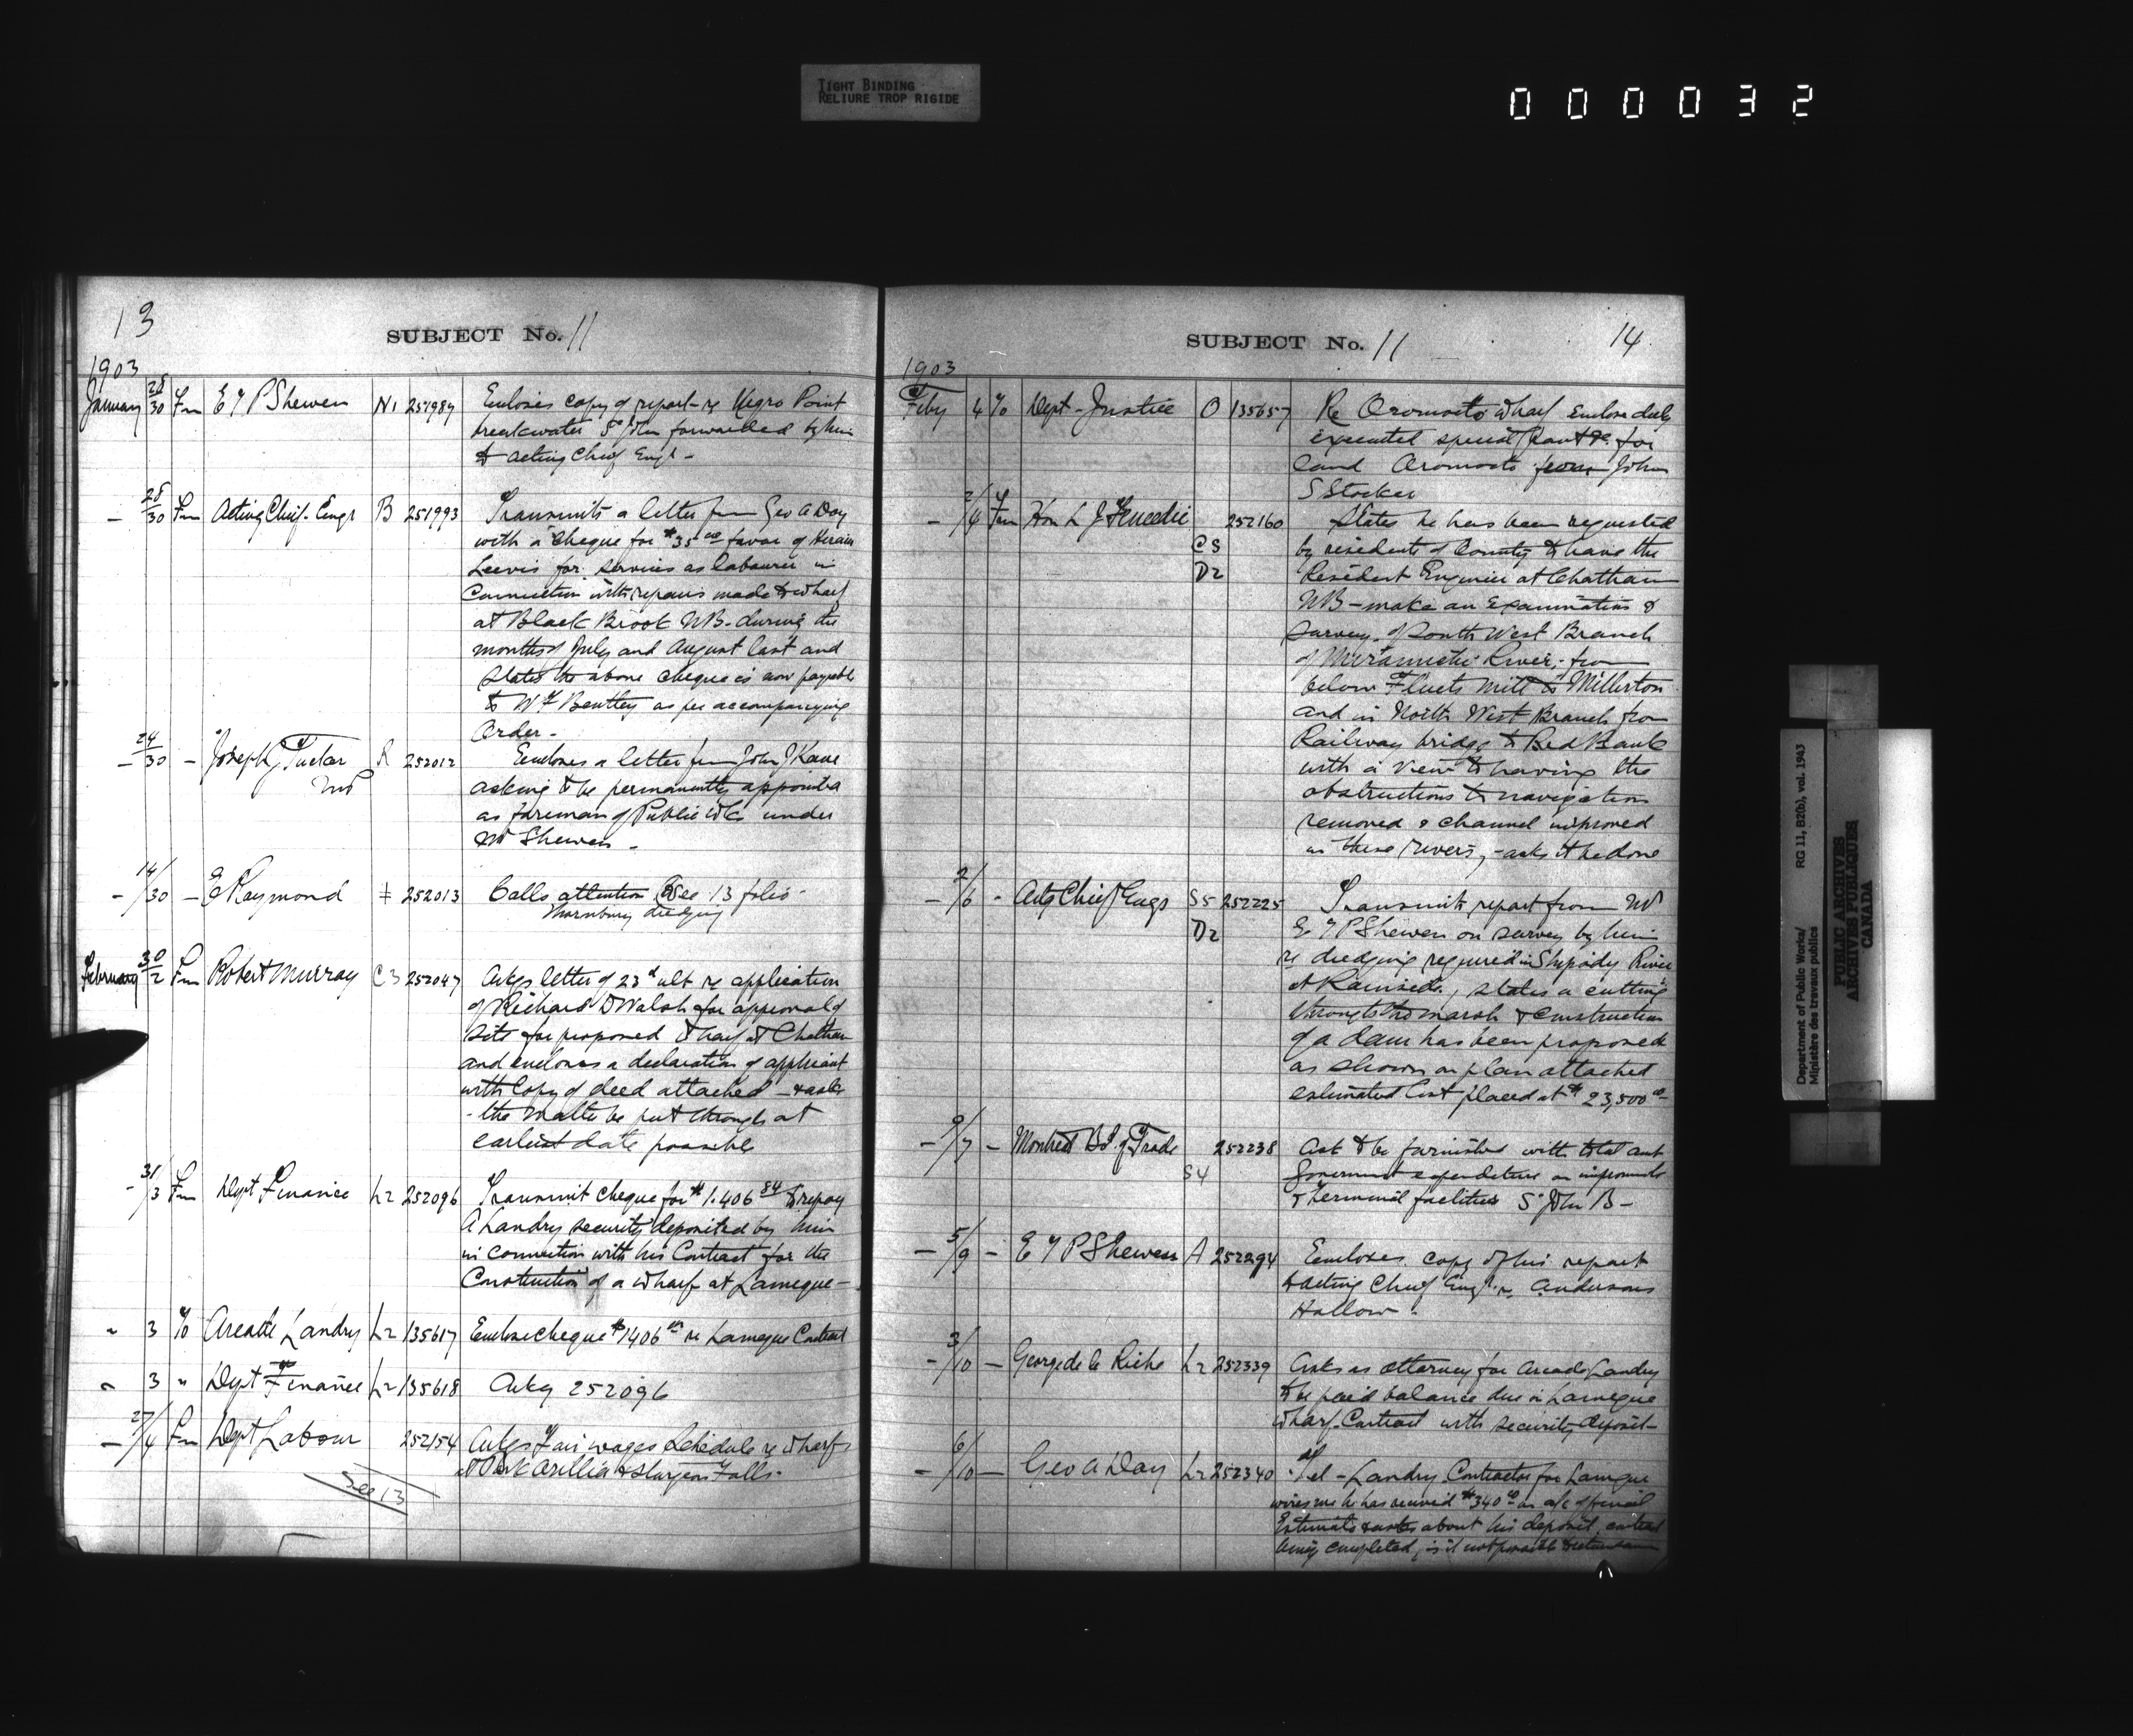 TIGHT BINDING
RELIURE TROP RIGIDE
000032
13
SUBJECT No. 11
1903
January 28/30 Fm E T P Shewen N1 251989 Encloses copy of report re Negro Point
breakwater St John forwarded by him
to acting Chief Engr -
- 28/30 Fm Acting Chief Engr B 251993 Transmits a letter from Geo A Day
with a cheque for $35 00 favor of Hiram
Leevis for services as labourer in
Connection with repairs made to wharf
at Black Brook NB. during the
months of July and August last and
states the above cheque is now payable
to W F Bentley as per accompanying
Order -
- 24/30 - Joseph Tucker MP R 252012 Encloses a letter from John J Kane
asking to be permanently appointed
as foreman of Public Wks under
Mr Shewen -
- 14/30 - E Raymond ‡ 252013 Calls attention See 13 folio
Thornbury dredging
February 30/2 Fm Robert Murray C3 252047 Ackgs letter of 23d ult re application
of Richard D Walsh for approval of
site for proposed wharf at Chatham
and encloses a declaration of applicant
with Copy of deed attached - & asks
- the matter be put through at
earliest date possible
- 31/3 Fm Dept Finance L2 252096 Transmit cheque for $1.406 84 to repay
A Landry security deposited by him
in connection with his Contract for the
Construction of a wharf at Lameque -
" 3 To Arcade Landry L2 135617 Enclose cheque $1406 re Lameque Contract
" 3 " Dept of Finance L2 135618 Ackg 252096
- 27/4 Fm Dept Labour 252154 Ackgs Fair wages Schedule re wharfs
at Park Orillia & Sturgeon Falls -
See 13
SUBJECT No. 11
14
1903
Feby 4 To Dept Justice O 135657 Re Oromocto wharf Enclose duly
executed special for
land Oromocto from John
S Stocker
- 2/4 Fm Hon L J Tweedie C3 D2 252160 States he has been requested
by residents of County to have the
Resident Engineer at Chatham
NB - make an Examination &
survey of South West Branch
of Miramichi River, from
below Fletts Mill to Millerton
and in North West Branch from
Railway bridge to Red Bank
with a view to having the
obstructions to navigation
removed & channel improved
in these rivers, - asks it be done
- 2/6 - Actg Chief Engr S5 D2 252225 Transmits report from Mr
E T P Shewen on survey by him
re dredging required in Shipody River
at, states a cutting
through the marsh & construction
of a dam has been proposed
as shown on plan attached
estimated Cost placed at $23,500 00
- 9/7 - Montreal Bd. of Trade S4 252238 Ask to be furnished with total amt
Government expenditure on improvmts
& terminal facilities St John B -
- 5/9 - E T P Shewen A 252294 Encloses copy of his report
to acting Chief Engr. re Andersons
Hollow -
- 3/10 - George de la Riche L2 252339 Asks as attorney for Arcade Landry
to be paid balance due in Lameque
Wharf Contract with security deposit -
- 6/10 - Geo A Day L2 252340 Tel - Landry Contractor for Lameque
wires me he has received $340 00 on a/c of final
Estimate & asks about his deposit, contract
being completed, is it not possible to
Department of Public Works/
Ministère des travaux publics
RG 11, B2(b), vol. 1943
PUBLIC ARCHIVES
ARCHIVES PUBLIQUES
CANADA